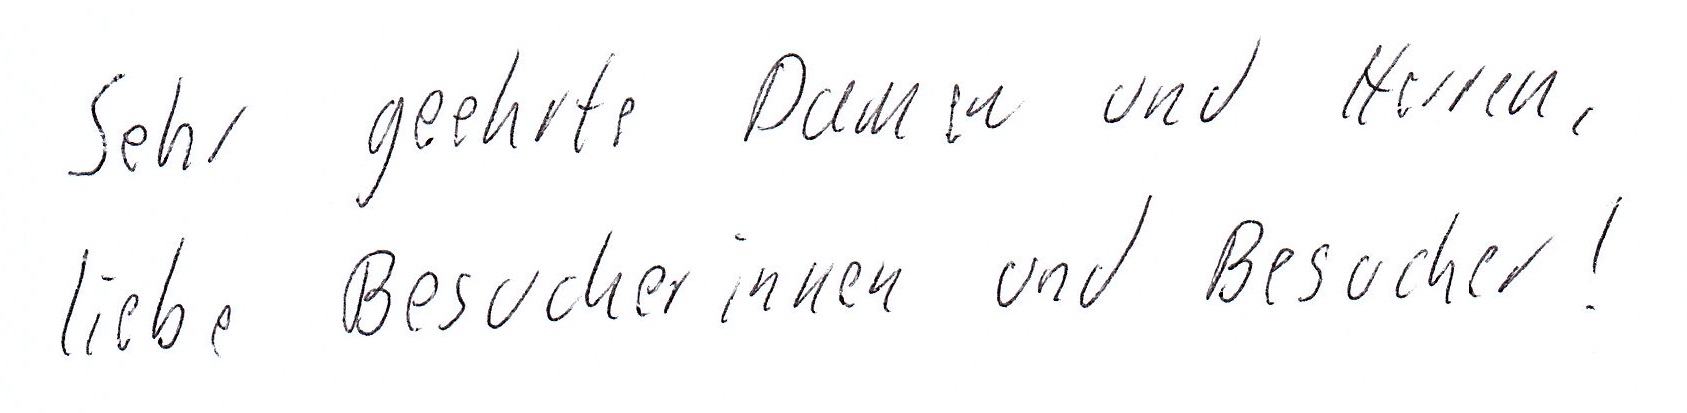 Sehr geehrte Damen und Herren,
liebe Besucherinnen und Besucher!